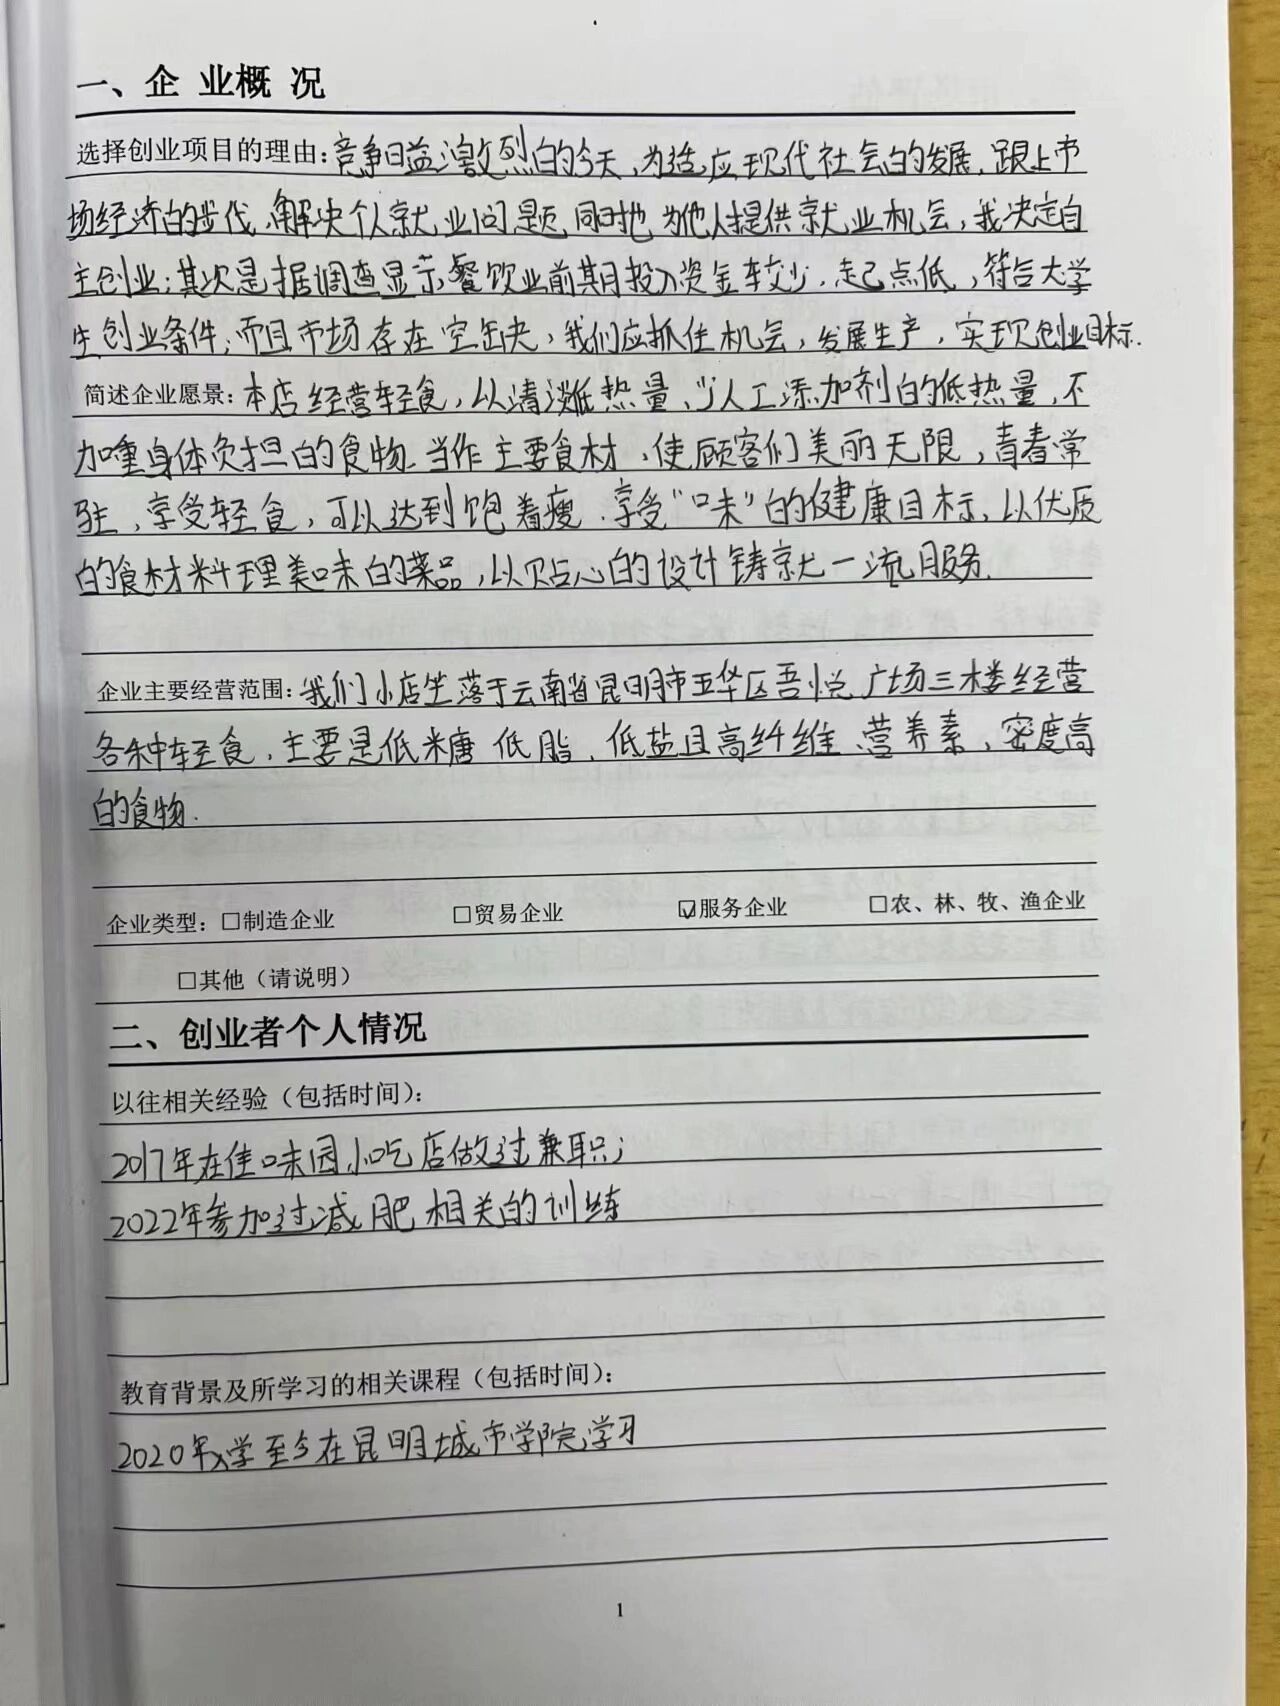 一、企 业概 况
选择创业项目的理由:竞争日益激烈的今天、为适应现代社会的发展、跟上市
场经济的步伐、解决个人就业问题、同时也为他人提供就业机会,我决定自
主创业;其次是据调查显示餐饮业前期投入资金较少、起点低,符合大学
生创业条件;而且市场存在空缺,我们应抓住机会,发展生产,实现创业目标.
简述企业愿景:本店经营轻食,以清淡低热量、少人工添加剂的低热量,不
加重身体负担的食物、当作主要食材、使顾客们美丽无限,青春常
驻,享受轻食,可以达到饱着瘦、享受“味”的健康目标、以优质
的食材料理美味的菜品,以贴心的设计铸就一流服务.
企业主要经营范围:我们小店坐落于云南省昆明市五华区吾悦广场三楼经营
各种轻食,主要是低糖 低脂、低盐且高纤维、营养素,密度高
的食物.
企业类型:□制造企业 □贸易企业 ☑服务企业 □农、林、牧、渔企业
□其他(请说明)
二、创业者个人情况
以往相关经验(包括时间):
2017年在佳味园小吃店做过兼职;
2022年参加过减肥相关的训练
教育背景及所学习的相关课程(包括时间):
2020年入学至今在昆明城市学院学习
1